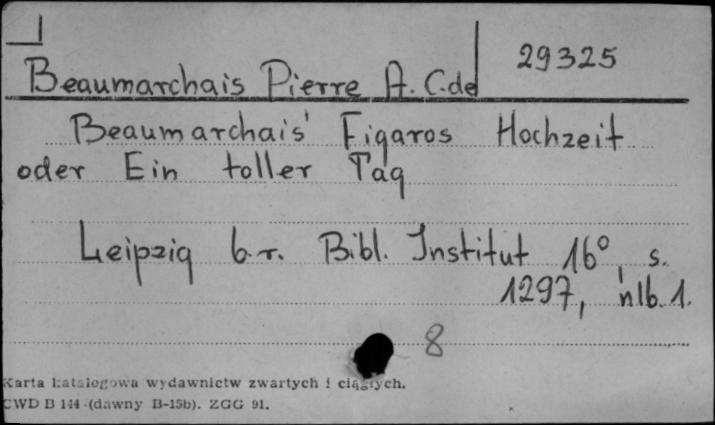 29325
Beaumarchais Pierre A. C. de
Beaumarchais' Figaros Hochzeit
oder Ein toller Tag
Leipzig b.r. Bibl. Institut 16°, s.
1297, nlb. 1.
8
Karta katalogowa wydawnictw zwartych i ciągłych.
CWD B 144 (dawny B-15b). ZGG 91.